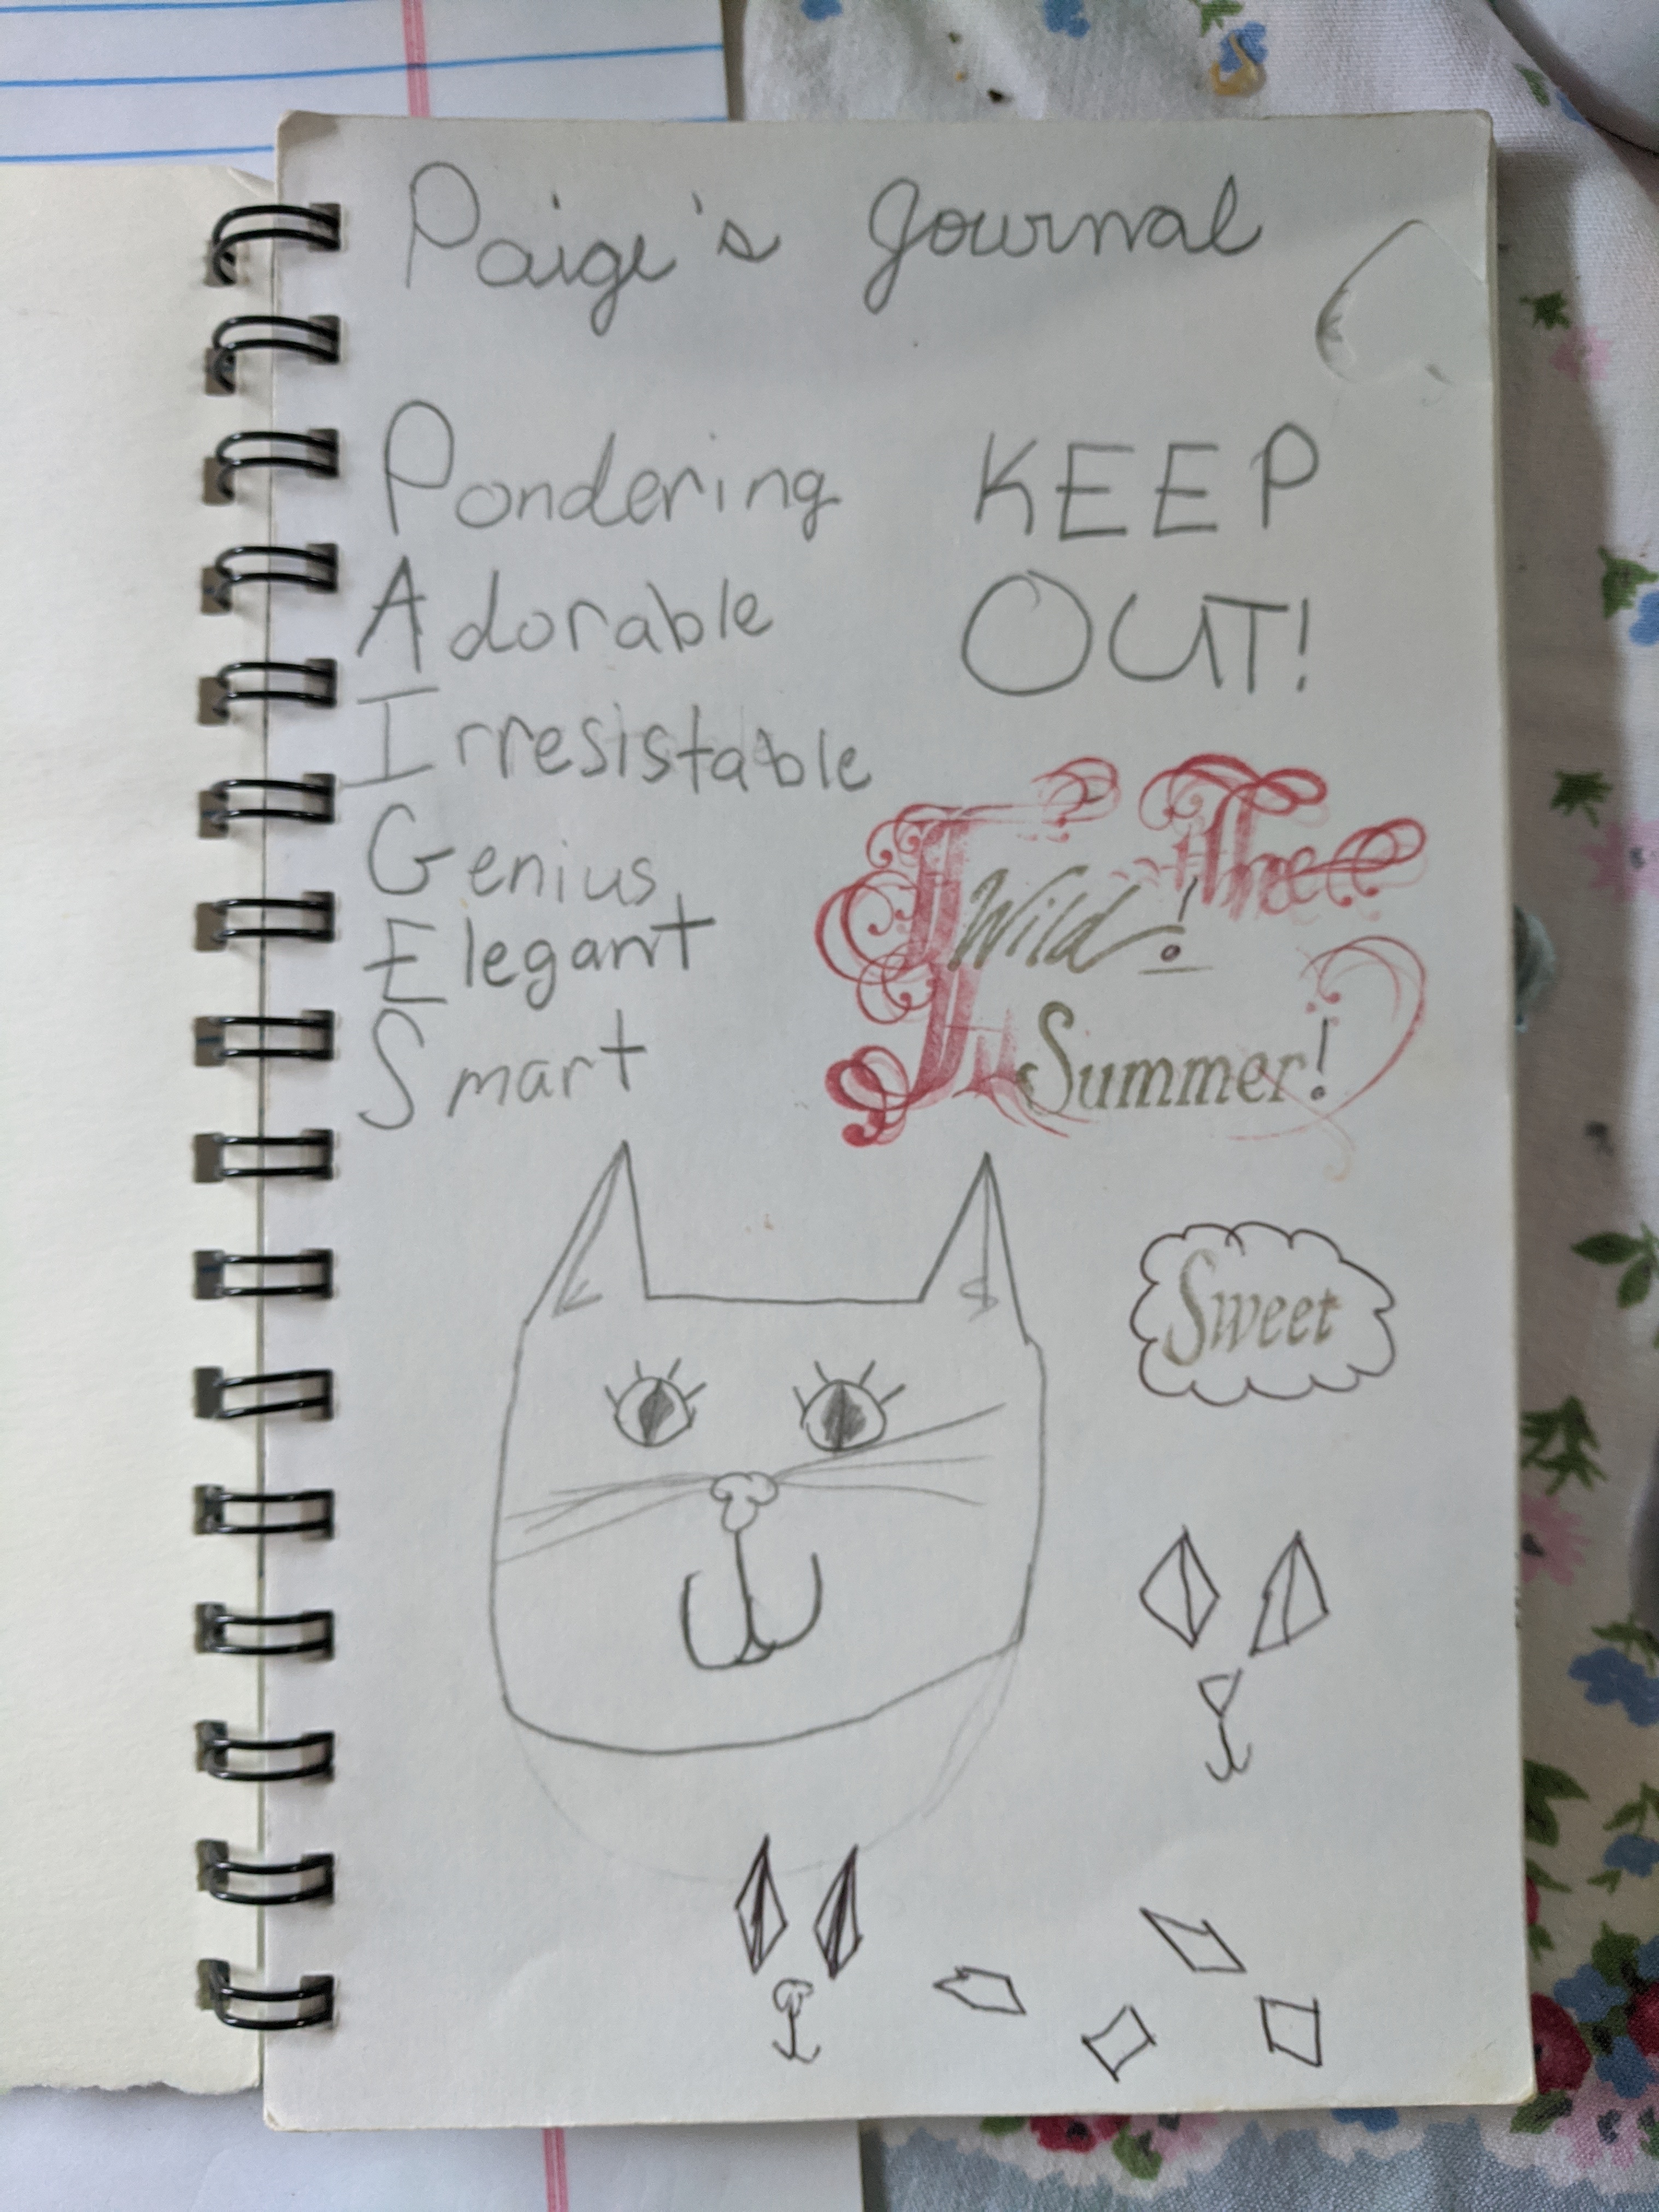 Paige's Journal
Pondering
Adorable
Irresistable
Genius
Elegant
Smart
KEEP
OUT!
Wild!
Summer!
Sweet